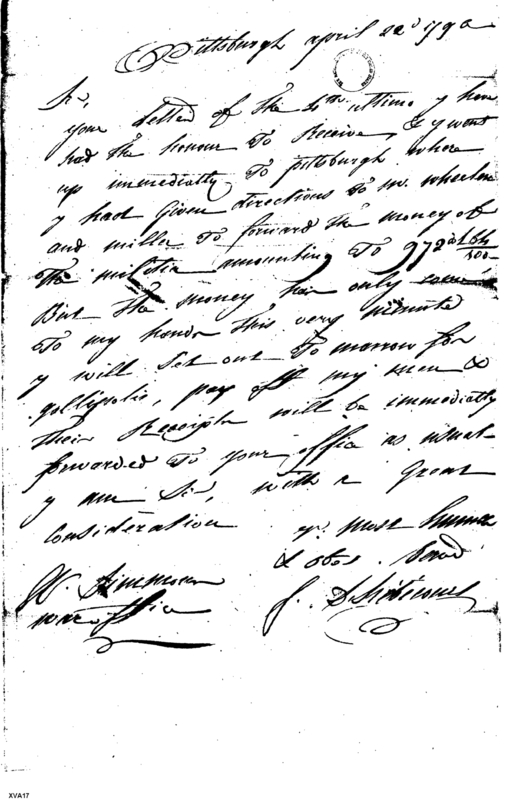 Pittsburgh april 22d 179
Sir,
your Letter of the 4th ultimo y have
had the honour To Receive, & y went
up immediatly To pittsburgh where
y had Given directions To mr. wheelen
and miller To forward the money of
The militia amounting To 972
100
But the money has only come
To my hands This very minute
y will Set out To morrow for
gallipolis, pay off my men &
Their Receipts will be immediatly
forwarded To your office as usual
y am Sir, with a Great
Consideration
yr. most humble
& obt. Servt.
W. Simmons
war office
J. D'hébécourt
XVA17